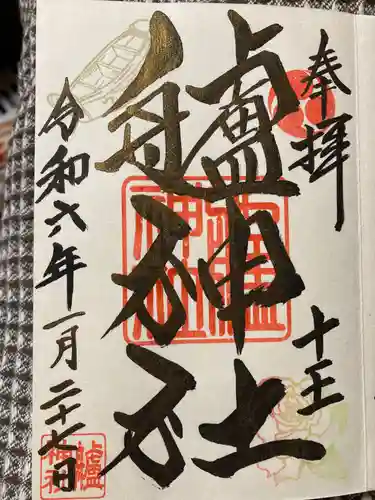 奉拝
十王
艫神社
艫神社
令和六年一月二十七日
艫神社